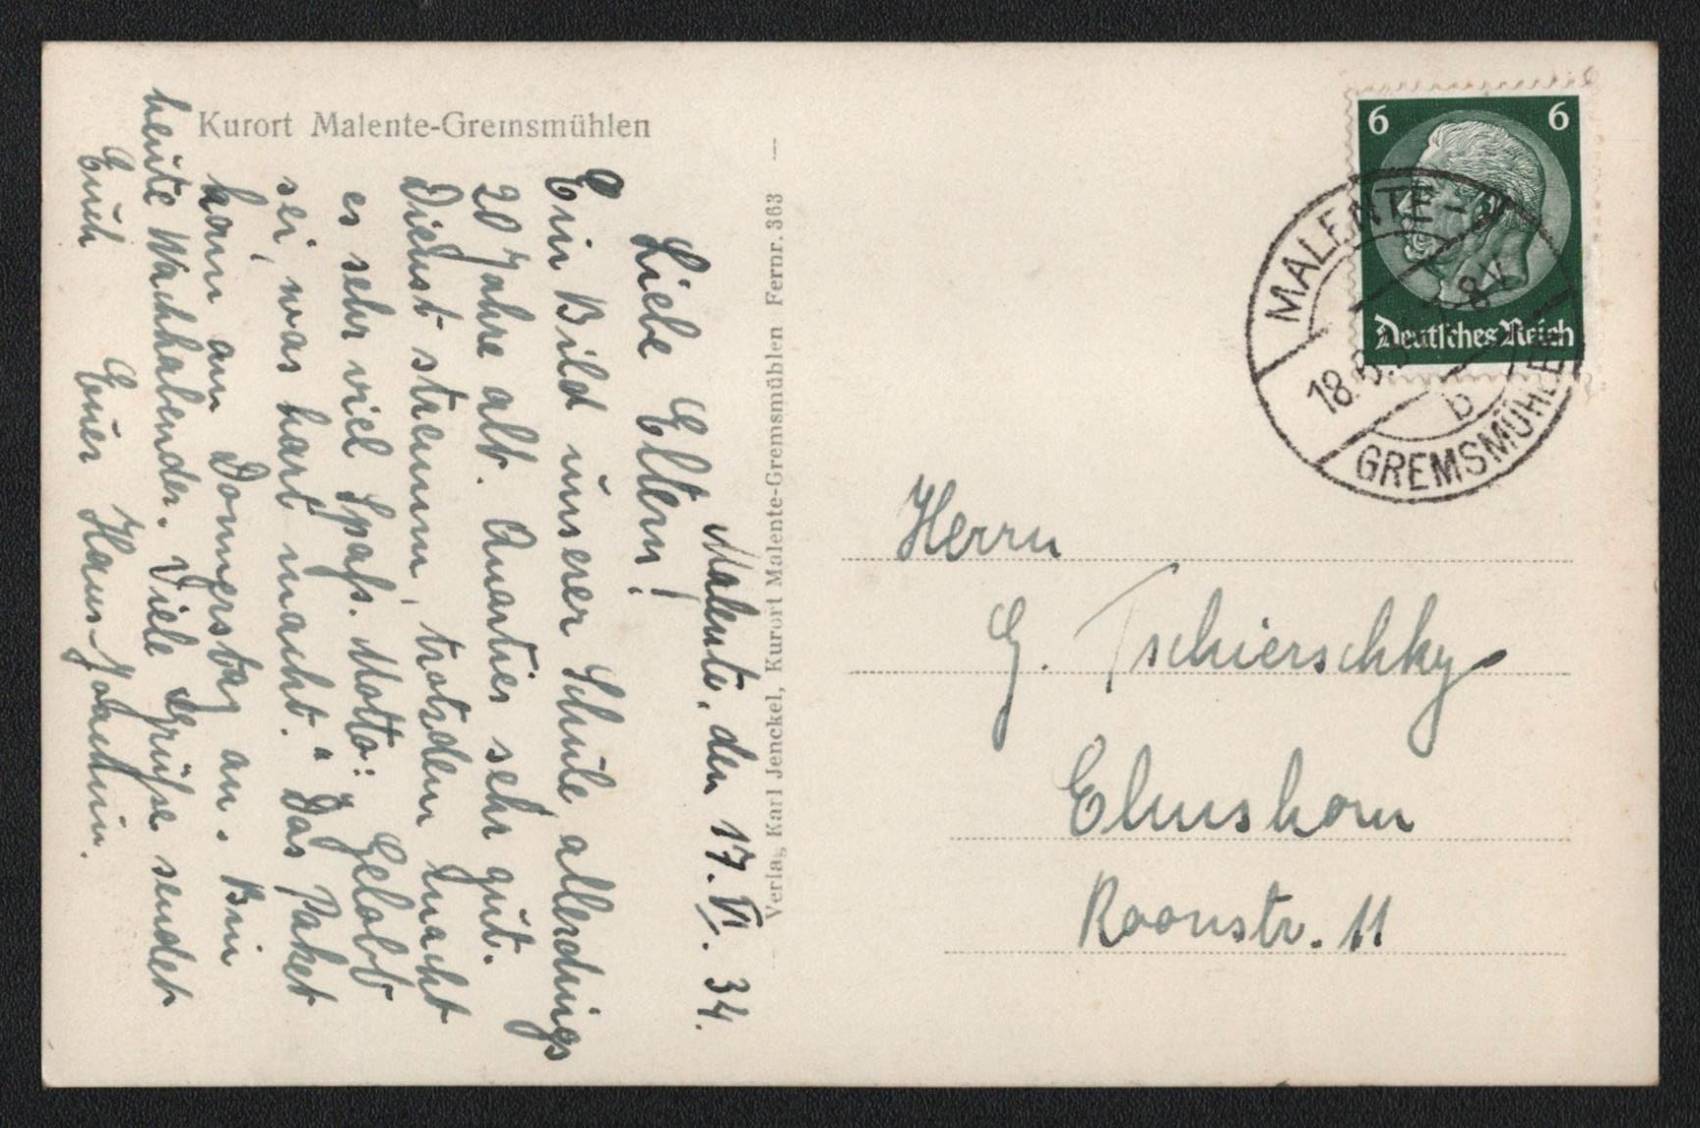 Kurort Malente-Gremsmühlen
Malente, den 17. VI. 34.
Liebe Eltern!
Ein Bild unserer Schule, allerdings
20 Jahre alt. Quartier sehr gut.
Dienst stramm, trotzdem macht
es sehr viel Spaß. Motto: „Gelobt
sei, was hart macht." Das Paket
kam am Donnerstag an. Bin
heute Wachhabender. Viele Grüße sendet
Euch Euer Hans-Joachim.
Verlag Karl Jenckel, Kurort Malente-Gremsmühlen Fernr. 363
6 6
Deutsches Reich
MALENTE-
18.6.
8V
b
GREMSMÜHLEN
Herrn
G. Tschierschky
Elmshorn
Roonstr. 11